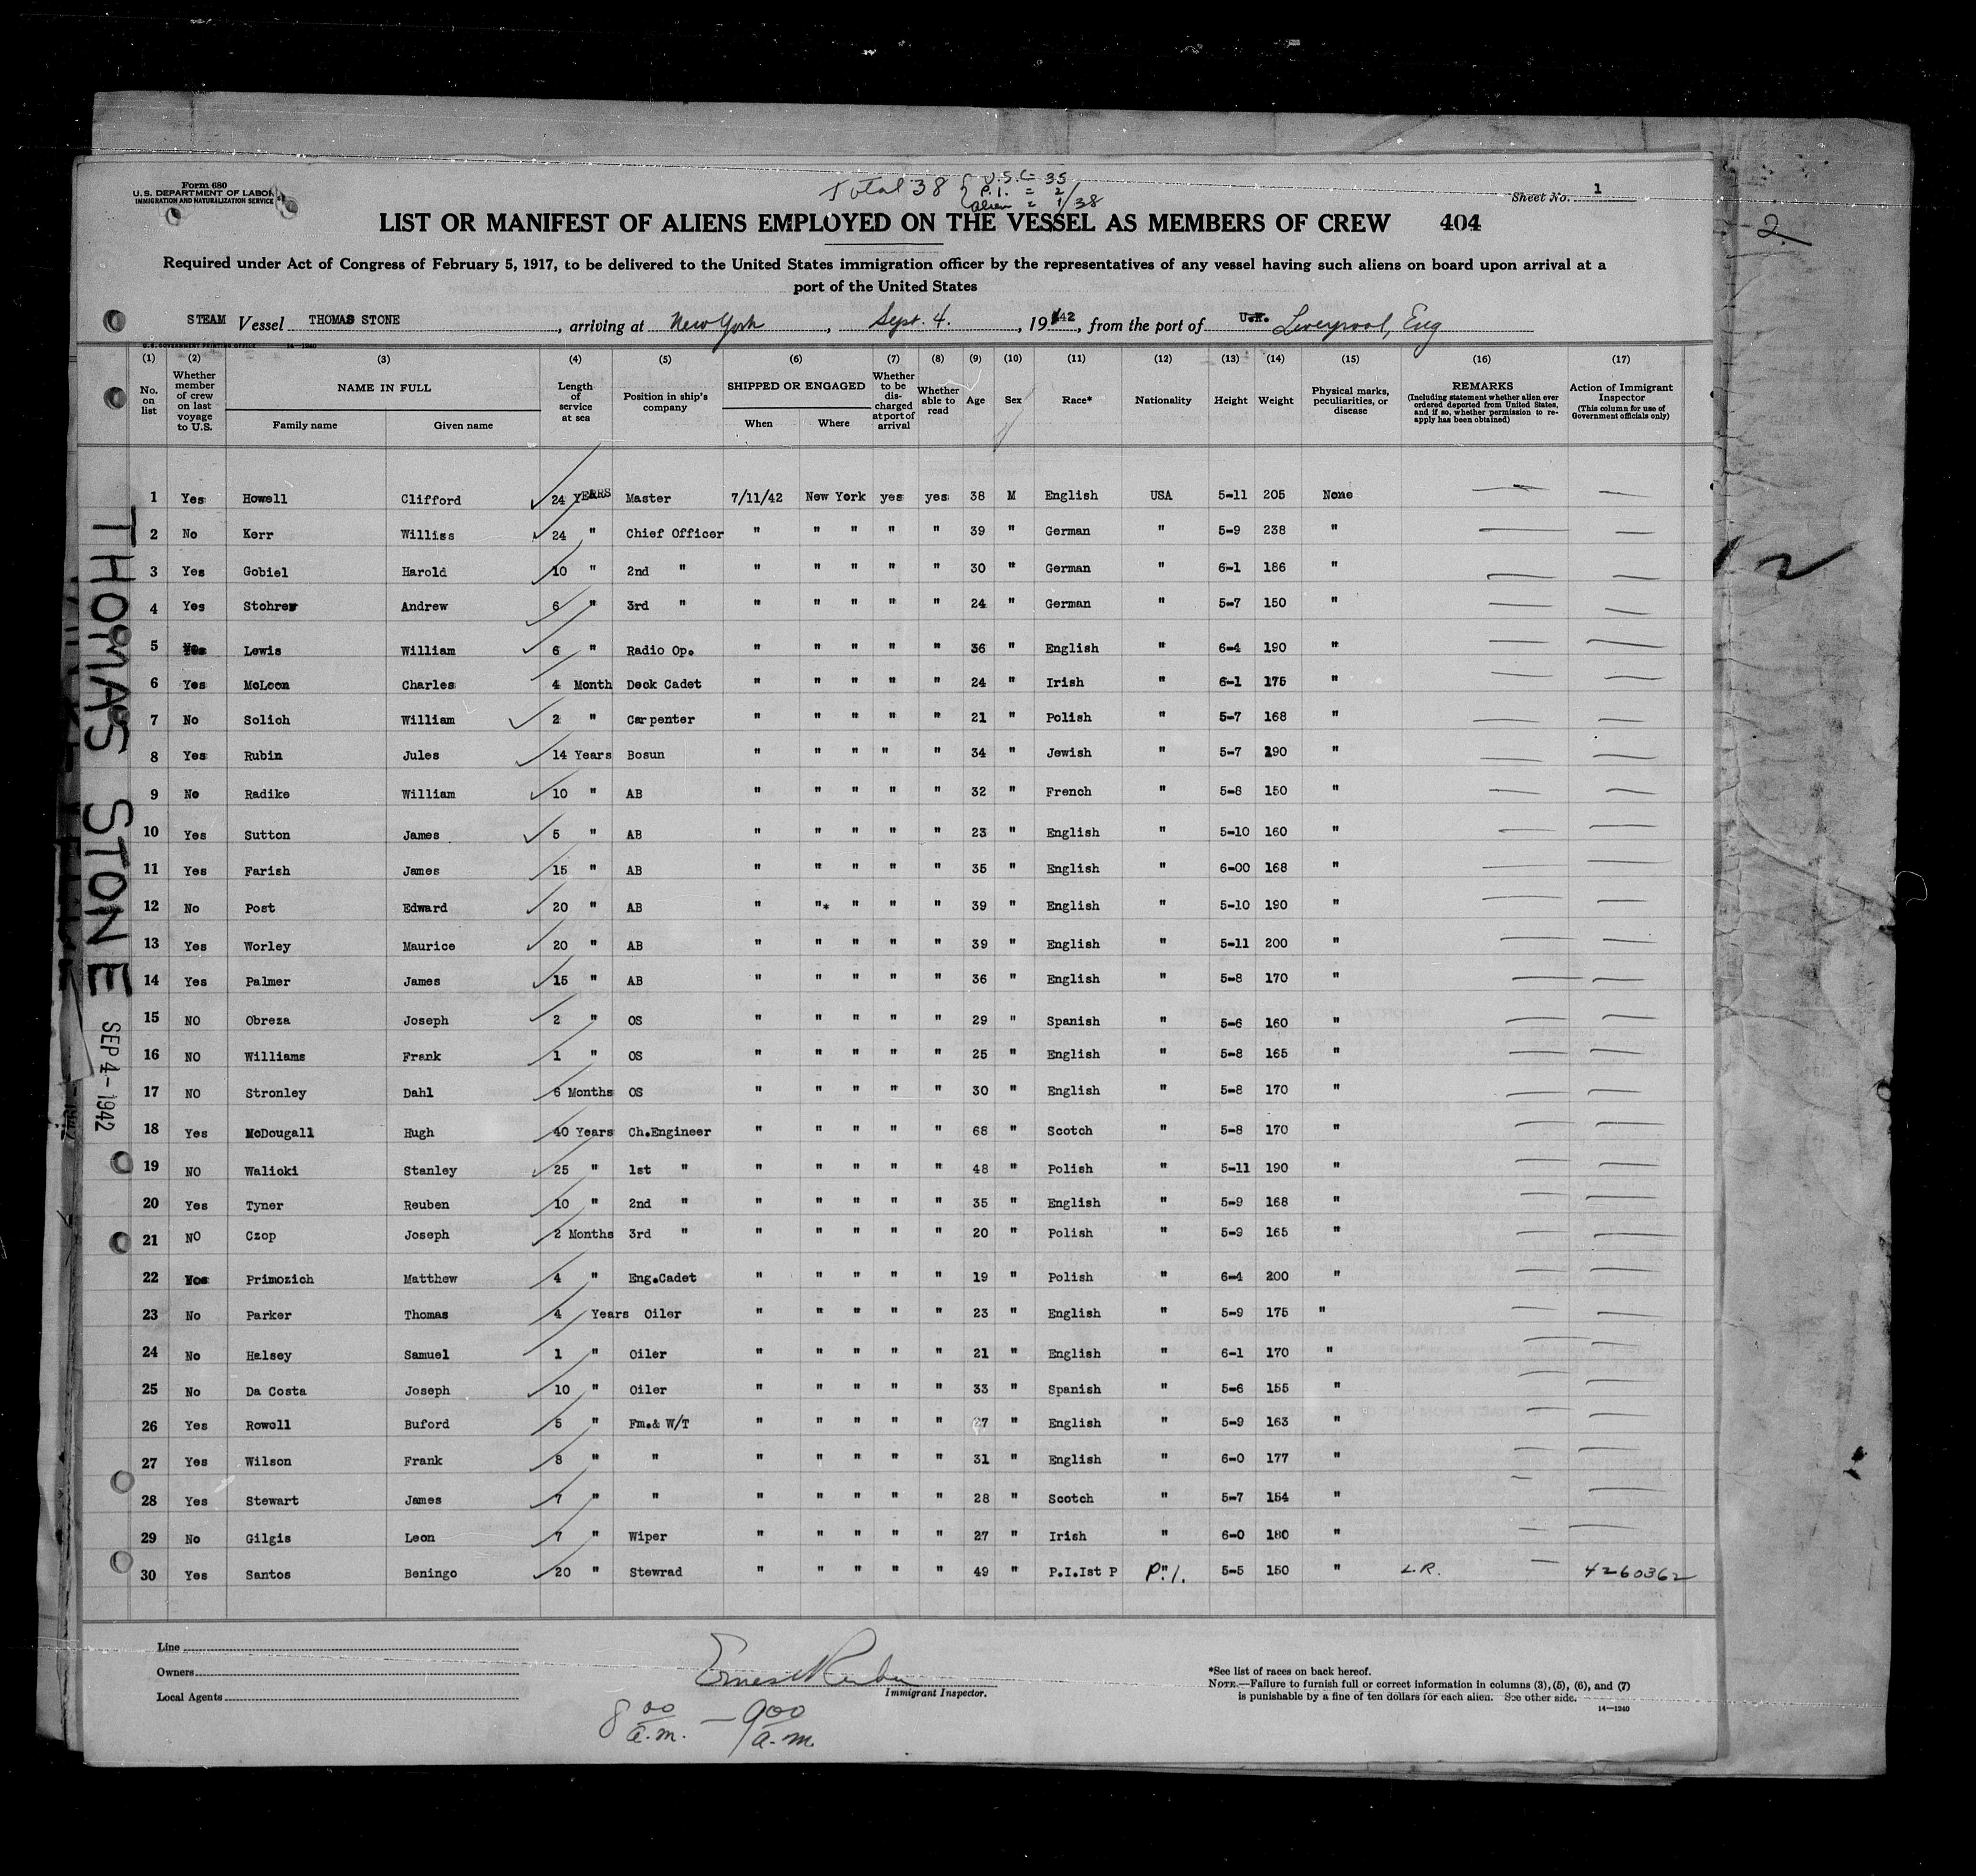 Form 680
U.S. DEPARTMENT OF LABOR
IMMIGRATION AND NATURALIZATION SERVICE
Total 38 { U.S.C = 35
P.I. = 2
alien = 1/38
Sheet No. 1
LIST OR MANIFEST OF ALIENS EMPLOYED ON THE VESSEL AS MEMBERS OF CREW 404
2
Required under Act of Congress of February 5, 1917, to be delivered to the United States immigration officer by the representatives of any vessel having such aliens on board upon arrival at a
port of the United States
STEAM Vessel THOMAS STONE, arriving at New York, Sept. 4., 1942, from the port of U.K. Liverpool, Eng
U.S. GOVERNMENT PRINTING OFFICE 14-1240
(1) (2) (3) (4) (5) (6) (7) (8) (9) (10) (11) (12) (13) (14) (15) (16) (17)
No. on list Whether member of crew on last voyage to U.S. NAME IN FULL Family name Given name Length of service at sea Position in ship's company SHIPPED OR ENGAGED When Where Whether to be discharged at port of arrival Whether able to read Age Sex Race* Nationality Height Weight Physical marks, peculiarities, or disease REMARKS (Including statement whether alien ever ordered deported from United States, and if so, whether permission to re-apply has been obtained) Action of Immigrant Inspector (This column for use of Government officials only)
1 Yes Howell Clifford 24 YEARS Master 7/11/42 New York yes yes 38 M English USA 5-11 205 None
2 No Kerr Williss 24 " Chief Officer " " " " " 39 " German " 5-9 238 "
3 Yes Gobiel Harold 10 " 2nd " " " " " " 30 " German " 6-1 186 "
4 Yes Stohrer Andrew 6 " 3rd " " " " " " 24 " German " 5-7 150 "
5 Lewis William 6 " Radio Op. " " " " " 36 " English " 6-4 190 "
6 Yes McLeon Charles 4 Month Deck Cadet " " " " " 24 " Irish " 6-1 175 "
7 No Solich William 2 " Carpenter " " " " " 21 " Polish " 5-7 168 "
8 Yes Rubin Jules 14 Years Bosun " " " " " 34 " Jewish " 5-7 190 "
9 No Radike William 10 " AB " " " " " 32 " French " 5-8 150 "
10 Yes Sutton James 5 " AB " " " " " 23 " English " 5-10 160 "
11 Yes Farish James 15 " AB " " " " " 35 " English " 6-00 168 "
12 No Post Edward 20 " AB " "* " " " 39 " English " 5-10 190 "
13 Yes Worley Maurice 20 " AB " " " " " 39 " English " 5-11 200 "
14 Yes Palmer James 15 " AB " " " " " 36 " English " 5-8 170 "
15 NO Obreza Joseph 2 " OS " " " " " 29 " Spanish " 5-6 160 "
16 NO Williams Frank 1 " OS " " " " " 25 " English " 5-8 165 "
17 NO Stronley Dahl 6 Months OS " " " " " 30 " English " 5-8 170 "
18 Yes McDougall Hugh 40 Years Ch.Engineer " " " " " 68 " Scotch " 5-8 170 "
19 NO Walicki Stanley 25 " 1st " " " " " " 48 " Polish " 5-11 190 "
20 Yes Tyner Reuben 10 " 2nd " " " " " " 35 " English " 5-9 168 "
21 NO Czop Joseph 2 Months 3rd " " " " " " 20 " Polish " 5-9 165 "
22 Primozich Matthew 4 " Eng.Cadet " " " " " 19 " Polish " 6-4 200 "
23 No Parker Thomas 4 Years Oiler " " " " " 23 " English " 5-9 175 "
24 No Halsey Samuel 1 " Oiler " " " " " 21 " English " 6-1 170 "
25 No Da Costa Joseph 10 " Oiler " " " " " 33 " Spanish " 5-6 155 "
26 Yes Rowell Buford 5 " Fm.& W/T " " " " " 27 " English " 5-9 163 "
27 Yes Wilson Frank 8 " " " " " " " 31 " English " 6-0 177 "
28 Yes Stewart James 7 " " " " " " " 28 " Scotch " 5-7 154 "
29 No Gilgis Leon 7 " Wiper " " " " " 27 " Irish " 6-0 180 "
30 Yes Santos Beningo 20 " Stewrad " " " " " 49 " P.I.Ist P P.I. 5-5 150 " L.R. 4260362
THOMAS STONE SEP 4-1942
Line
Owners
Local Agents
Immigrant Inspector.
8 00 a.m. - 9 00 a.m.
*See list of races on back hereof.
NOTE.—Failure to furnish full or correct information in columns (3), (5), (6), and (7)
is punishable by a fine of ten dollars for each alien. See other side.
14-1240